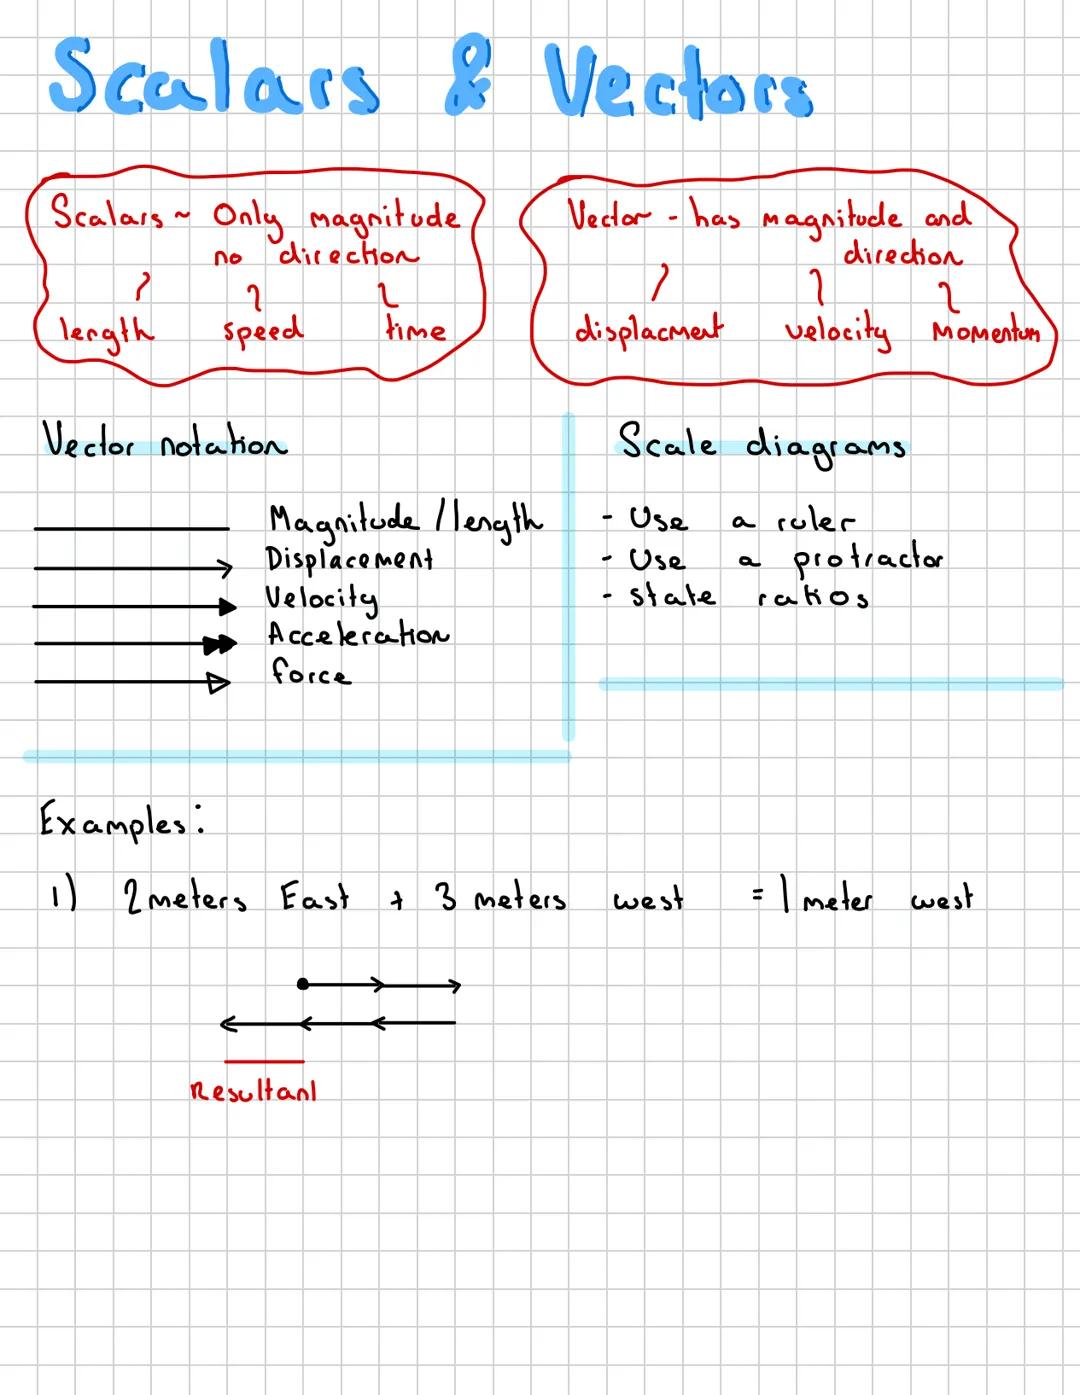 Scalars & Vectors
Scalars ~ Only magnitude
no direction
length speed time
Vector - has magnitude and
direction
displacment velocity Momentum
Vector notation
Magnitude / length
Displacement
Velocity
Acceleration
force
Scale diagrams
- Use a ruler
- Use a protractor
- state ratios
Examples:
1) 2 meters East + 3 meters west = 1 meter west
Resultant